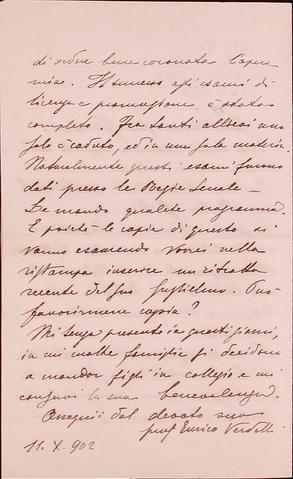 di veder bene coronata l'opera
mia. Il successo agli esami di
licenza e promozione è stato
completo. Fra tanti allievi uno
solo è caduto, ed in una sola materia.
Naturalmente questi esami furono
dati presso le Regie Scuole —
Le mando qualche programma.
E poichè le copie di questo si
vanno esaurendo vorrei nella
ristampa inserire un ritratto
recente del suo Guglielmo. Può
favorirmene copia?
Mi tenga presente in questi giorni,
in cui molte famiglie si decidono
a mandar figli in collegio e mi
conservi la sua benevolenza.
Ossequii dal devoto suo
prof Enrico
11. X. 902